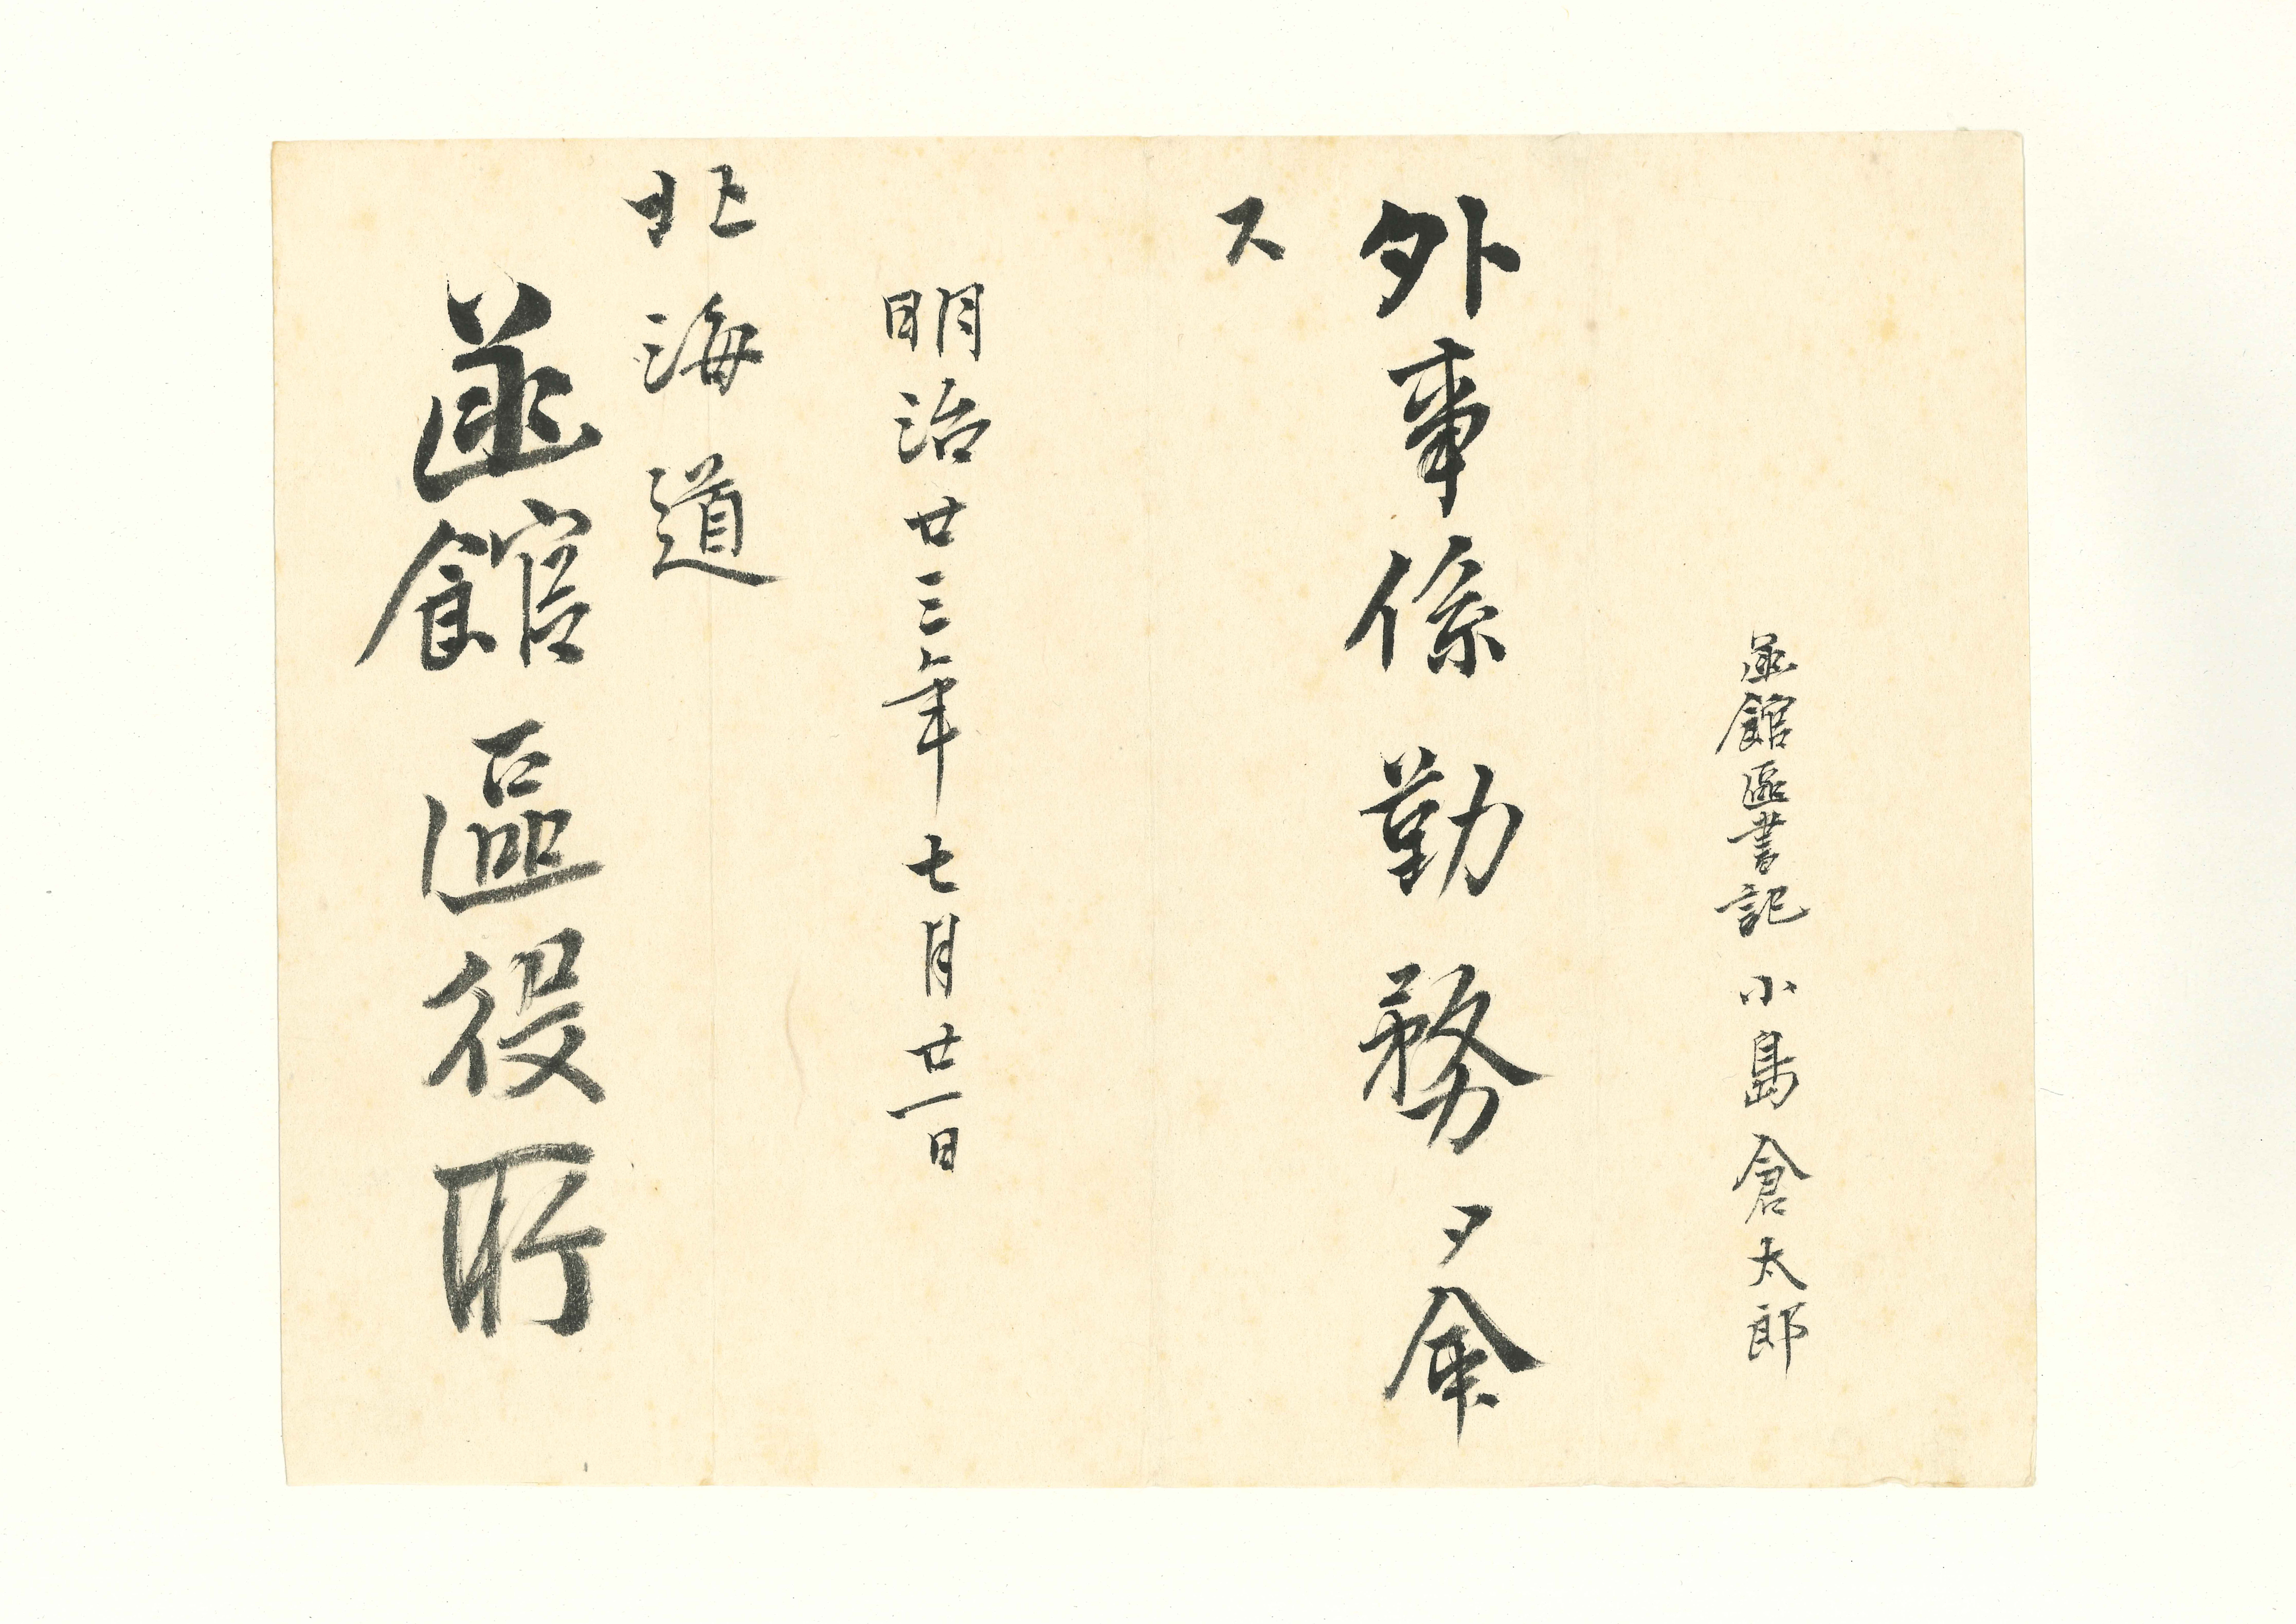 函館區書記 小島倉太郎
外事係勤務ヲ命
ス
明治廿三年七月廿一日
北海道
函館區役所